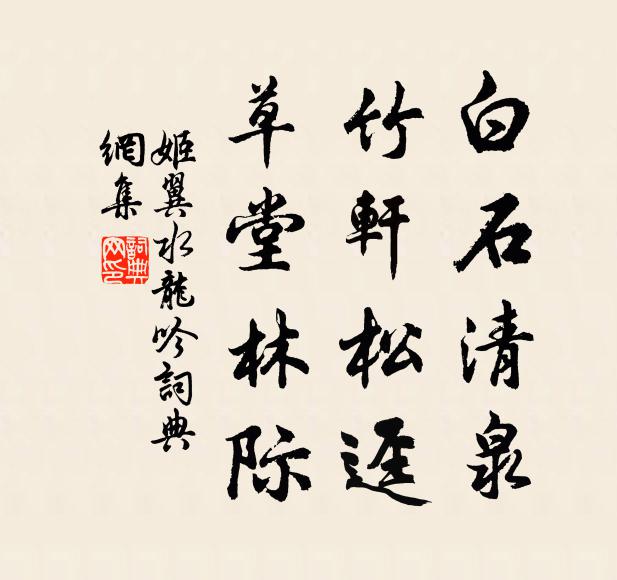 白石清泉
竹軒松逕
草堂林际
姬翼水龍吟詞典
網集
詞典网印